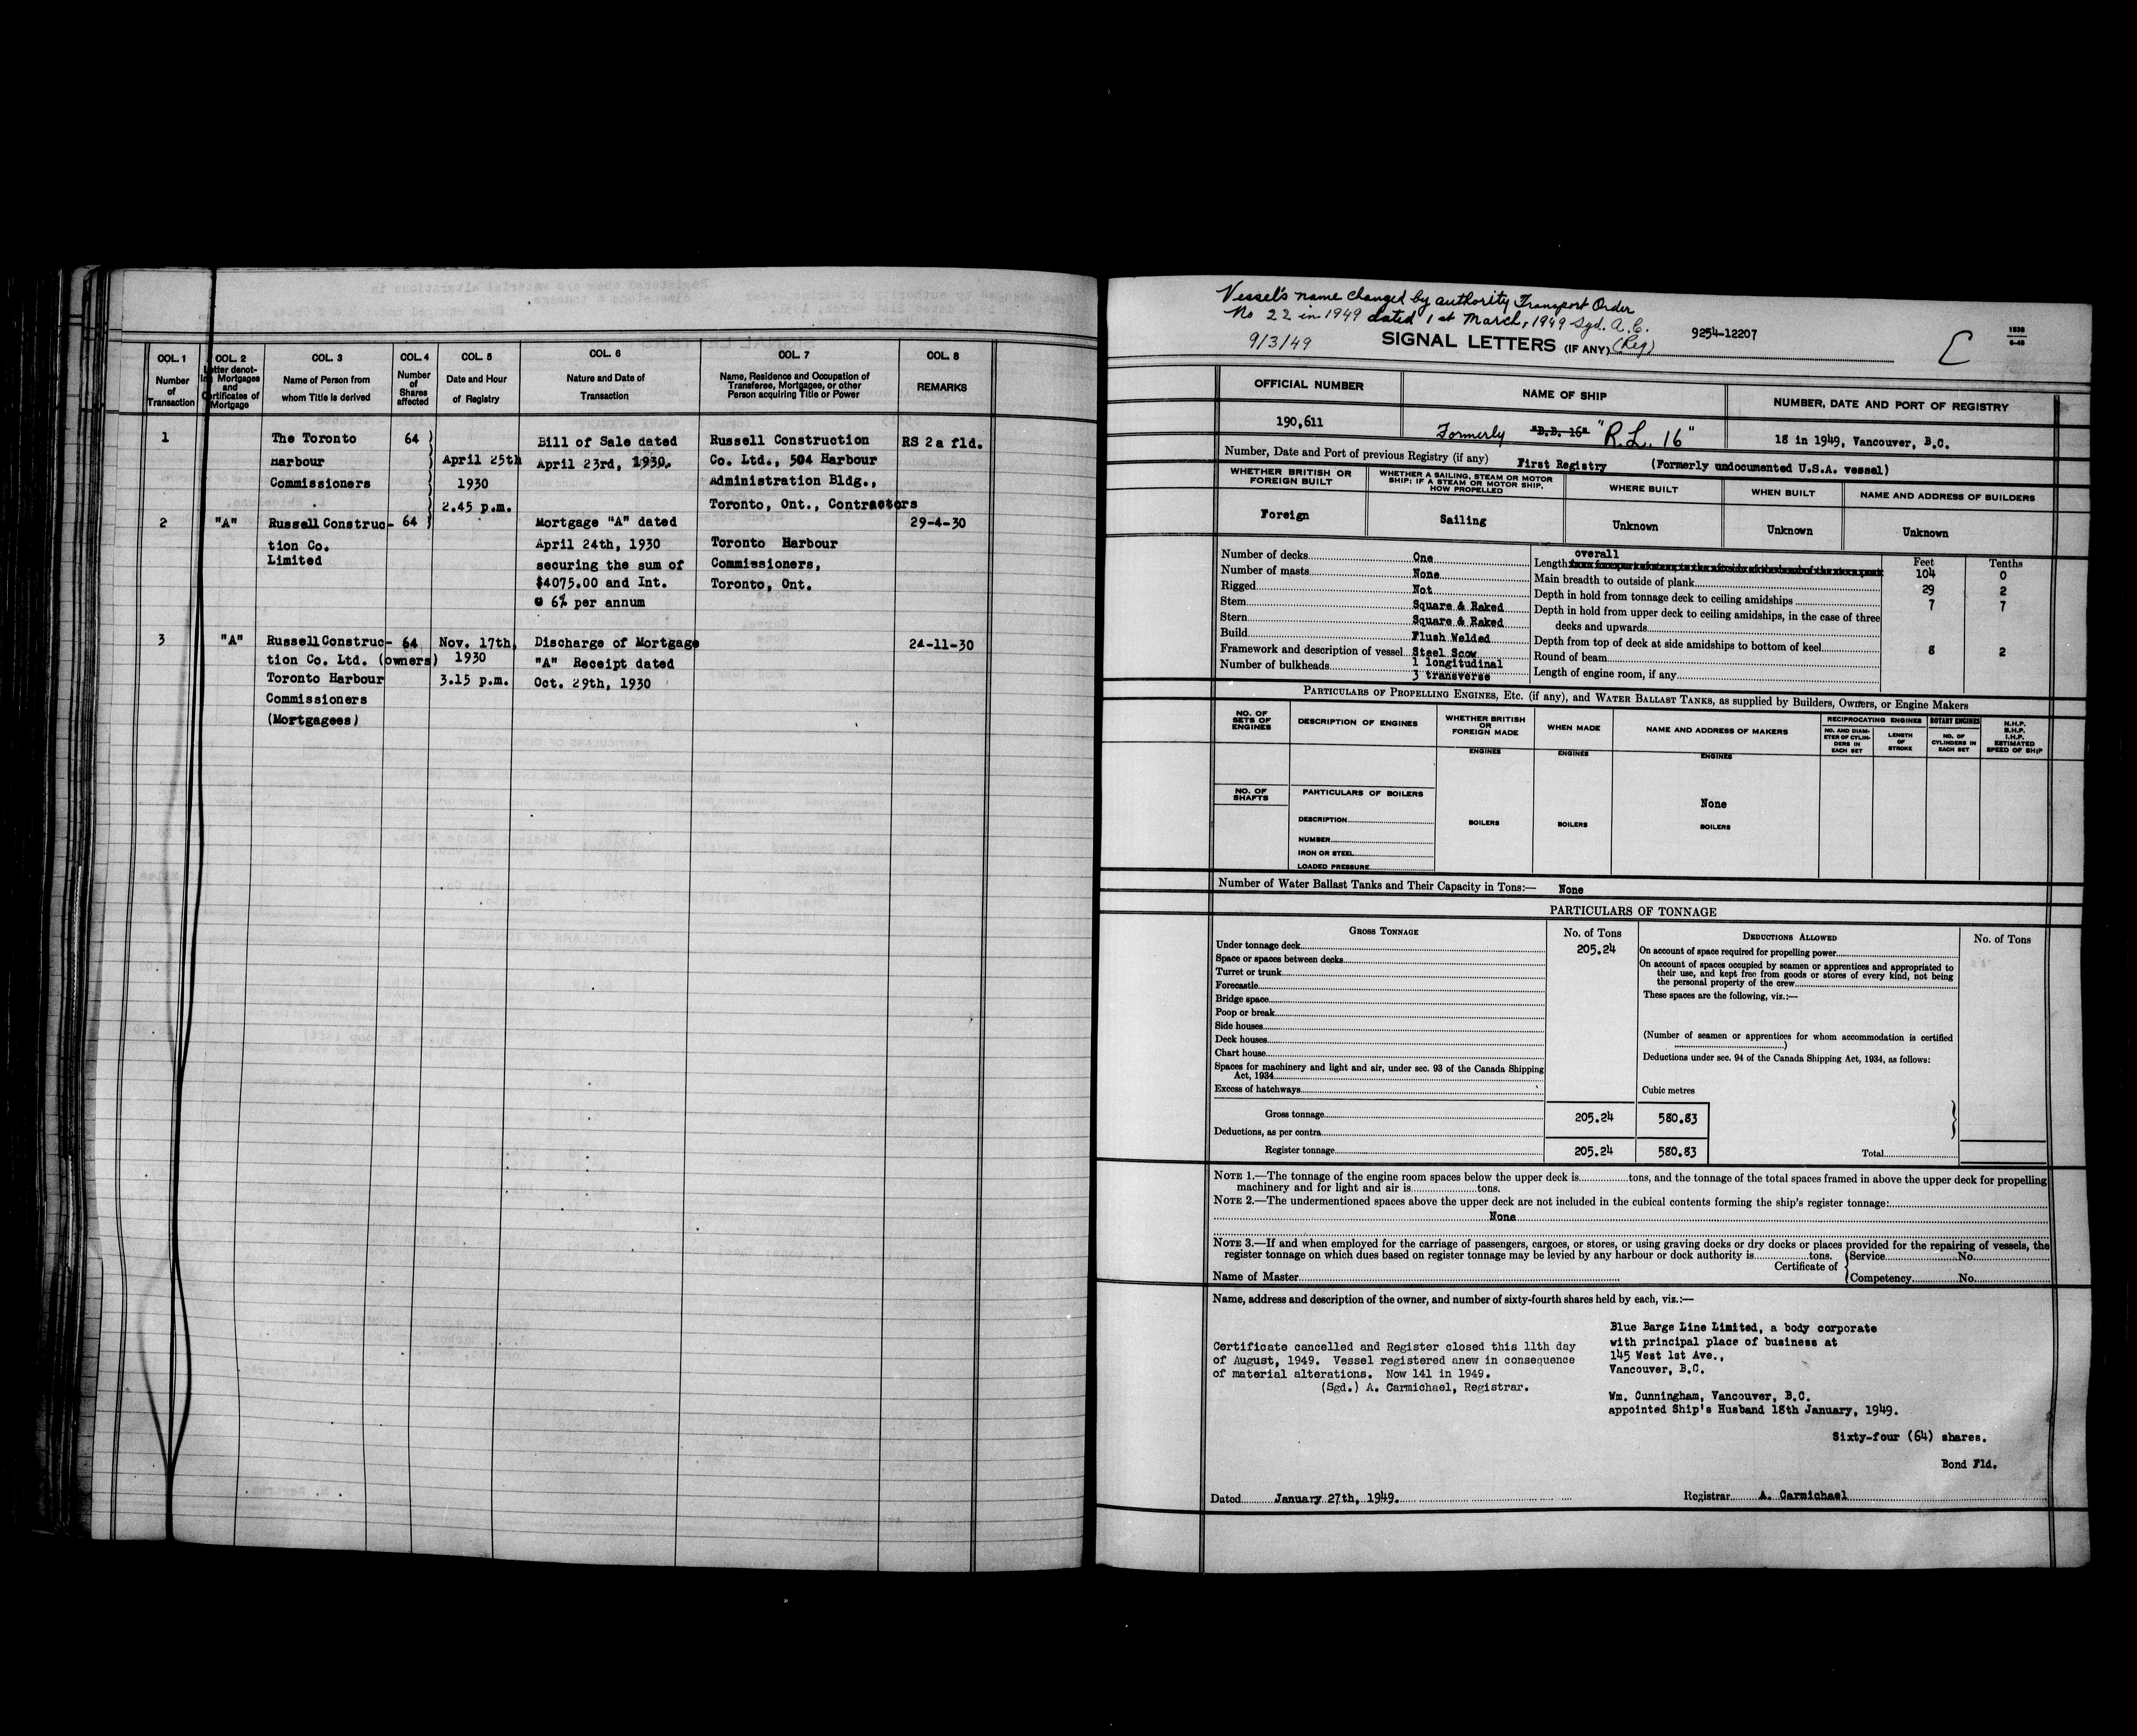 COL. 1
Number
of
Transaction
COL. 2
Letter denot-
ing Mortgages
and
Certificates of
Mortgage
COL. 3
Name of Person from
whom Title is derived
COL. 4
Number
of
Shares
affected
COL. 5
Date and Hour
of Registry
COL. 6
Nature and Date of
Transaction
COL. 7
Name, Residence and Occupation of
Transferee, Mortgagee, or other
Person acquiring Title or Power
COL. 8
REMARKS
1
The Toronto
Harbour
Commissioners
64
April 25th
1930
2.45 p.m.
Bill of Sale dated
April 23rd, 1930.
Russell Construction
Co. Ltd., 504 Harbour
Administration Bldg.,
Toronto, Ont., Contractors
RS 2a fld.
2
"A"
Russell Construc-
tion Co.
Limited
64
Mortgage "A" dated
April 24th, 1930
securing the sum of
$4075.00 and Int.
@ 6% per annum
Toronto Harbour
Commissioners,
Toronto, Ont.
29-4-30
3
"A"
Russell Construc-
tion Co. Ltd. (owners)
Toronto Harbour
Commissioners
(Mortgagees)
64
Nov. 17th,
1930
3.15 p.m.
Discharge of Mortgage
"A" Receipt dated
Oct. 29th, 1930
24-11-30
Vessel's name changed by authority Transport Order
No 22 in 1949 dated 1st March, 1949 Sgd. A.C.
9/3/49
(Reg)
SIGNAL LETTERS (IF ANY)
9254-12207
OFFICIAL NUMBER
NAME OF SHIP
NUMBER, DATE AND PORT OF REGISTRY
190,611
Formerly "B.B. 16" "R.L. 16"
18 in 1949, Vancouver, B.C.
Number, Date and Port of previous Registry (if any) First Registry (Formerly undocumented U.S.A. vessel)
WHETHER BRITISH OR
FOREIGN BUILT
WHETHER A SAILING, STEAM OR MOTOR
SHIP; IF A STEAM OR MOTOR SHIP,
HOW PROPELLED
WHERE BUILT
WHEN BUILT
NAME AND ADDRESS OF BUILDERS
Foreign
Sailing
Unknown
Unknown
Unknown
Number of decks One
Number of masts None
Rigged Not
Stem Square & Raked
Stern Square & Raked
Build Flush Welded
Framework and description of vessel Steel Scow
Number of bulkheads 1 longitudinal
3 transverse
Feet
Tenths
overall
Length 104 0
Main breadth to outside of plank 29 2
Depth in hold from tonnage deck to ceiling amidships 7 7
Depth in hold from upper deck to ceiling amidships, in the case of three
decks and upwards
Depth from top of deck at side amidships to bottom of keel 8 2
Round of beam
Length of engine room, if any
PARTICULARS OF PROPELLING ENGINES, ETC. (if any), AND WATER BALLAST TANKS, as supplied by Builders, Owners, or Engine Makers
NO. OF
SETS OF
ENGINES
DESCRIPTION OF ENGINES
WHETHER BRITISH
OR
FOREIGN MADE
WHEN MADE
NAME AND ADDRESS OF MAKERS
RECIPROCATING ENGINES
NO. AND DIAM-
ETER OF CYLIN-
DERS IN
EACH SET
LENGTH
OF
STROKE
ROTARY ENGINES
NO. OF
CYLINDERS IN
EACH SET
N.H.P.
B.H.P.
I.H.P.
ESTIMATED
SPEED OF SHIP
ENGINES
ENGINES
ENGINES
NO. OF
SHAFTS
PARTICULARS OF BOILERS
None
DESCRIPTION
BOILERS
BOILERS
BOILERS
NUMBER
IRON OR STEEL
LOADED PRESSURE
Number of Water Ballast Tanks and Their Capacity in Tons:— None
PARTICULARS OF TONNAGE
GROSS TONNAGE
No. of Tons
DEDUCTIONS ALLOWED
No. of Tons
Under tonnage deck 205.24
Space or spaces between decks
Turret or trunk
Forecastle
Bridge space
Poop or break
Side houses
Deck houses
Chart house
Spaces for machinery and light and air, under sec. 93 of the Canada Shipping
Act, 1934
Excess of hatchways
On account of space required for propelling power
On account of spaces occupied by seamen or apprentices and appropriated to
their use, and kept free from goods or stores of every kind, not being
the personal property of the crew
These spaces are the following, viz.:—
(Number of seamen or apprentices for whom accommodation is certified
)
Deductions under sec. 94 of the Canada Shipping Act, 1934, as follows:
Cubic metres
Gross tonnage 205.24 580.83
Deductions, as per contra
Register tonnage 205.24 580.83
Total
NOTE 1.—The tonnage of the engine room spaces below the upper deck is tons, and the tonnage of the total spaces framed in above the upper deck for propelling
machinery and for light and air is tons.
NOTE 2.—The undermentioned spaces above the upper deck are not included in the cubical contents forming the ship's register tonnage:
None
NOTE 3.—If and when employed for the carriage of passengers, cargoes, or stores, or using graving docks or dry docks or places provided for the repairing of vessels, the
register tonnage on which dues based on register tonnage may be levied by any harbour or dock authority is tons.
Certificate of
Service No.
Competency No.
Name of Master
Name, address and description of the owner, and number of sixty-fourth shares held by each, viz.:—
Certificate cancelled and Register closed this 11th day
of August, 1949. Vessel registered anew in consequence
of material alterations. Now 141 in 1949.
(Sgd.) A. Carmichael, Registrar.
Blue Barge Line Limited, a body corporate
with principal place of business at
145 West 1st Ave.,
Vancouver, B.C.
Wm. Cunningham, Vancouver, B.C.
appointed Ship's Husband 18th January, 1949.
Sixty-four (64) shares.
Bond Fld.
Dated January 27th, 1949.
Registrar A. Carmichael